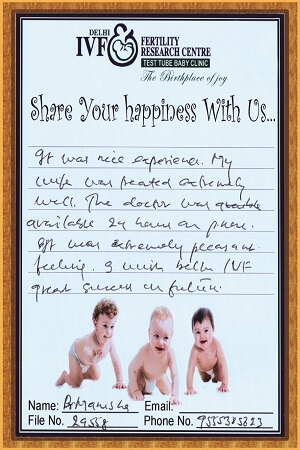 DELHI
IVF & FERTILITY
RESEARCH CENTRE
TEST TUBE BABY CLINIC
The Birthplace of joy
Share Your happiness With Us...
It was nice experience. My
wife was treated extremely
well. The doctor was
available 24 hours on phone.
It was extremely pleasant
feeling. I wish Delhi IVF
great success in future.
Name: Manisha Email:
File No. 29558 Phone No.